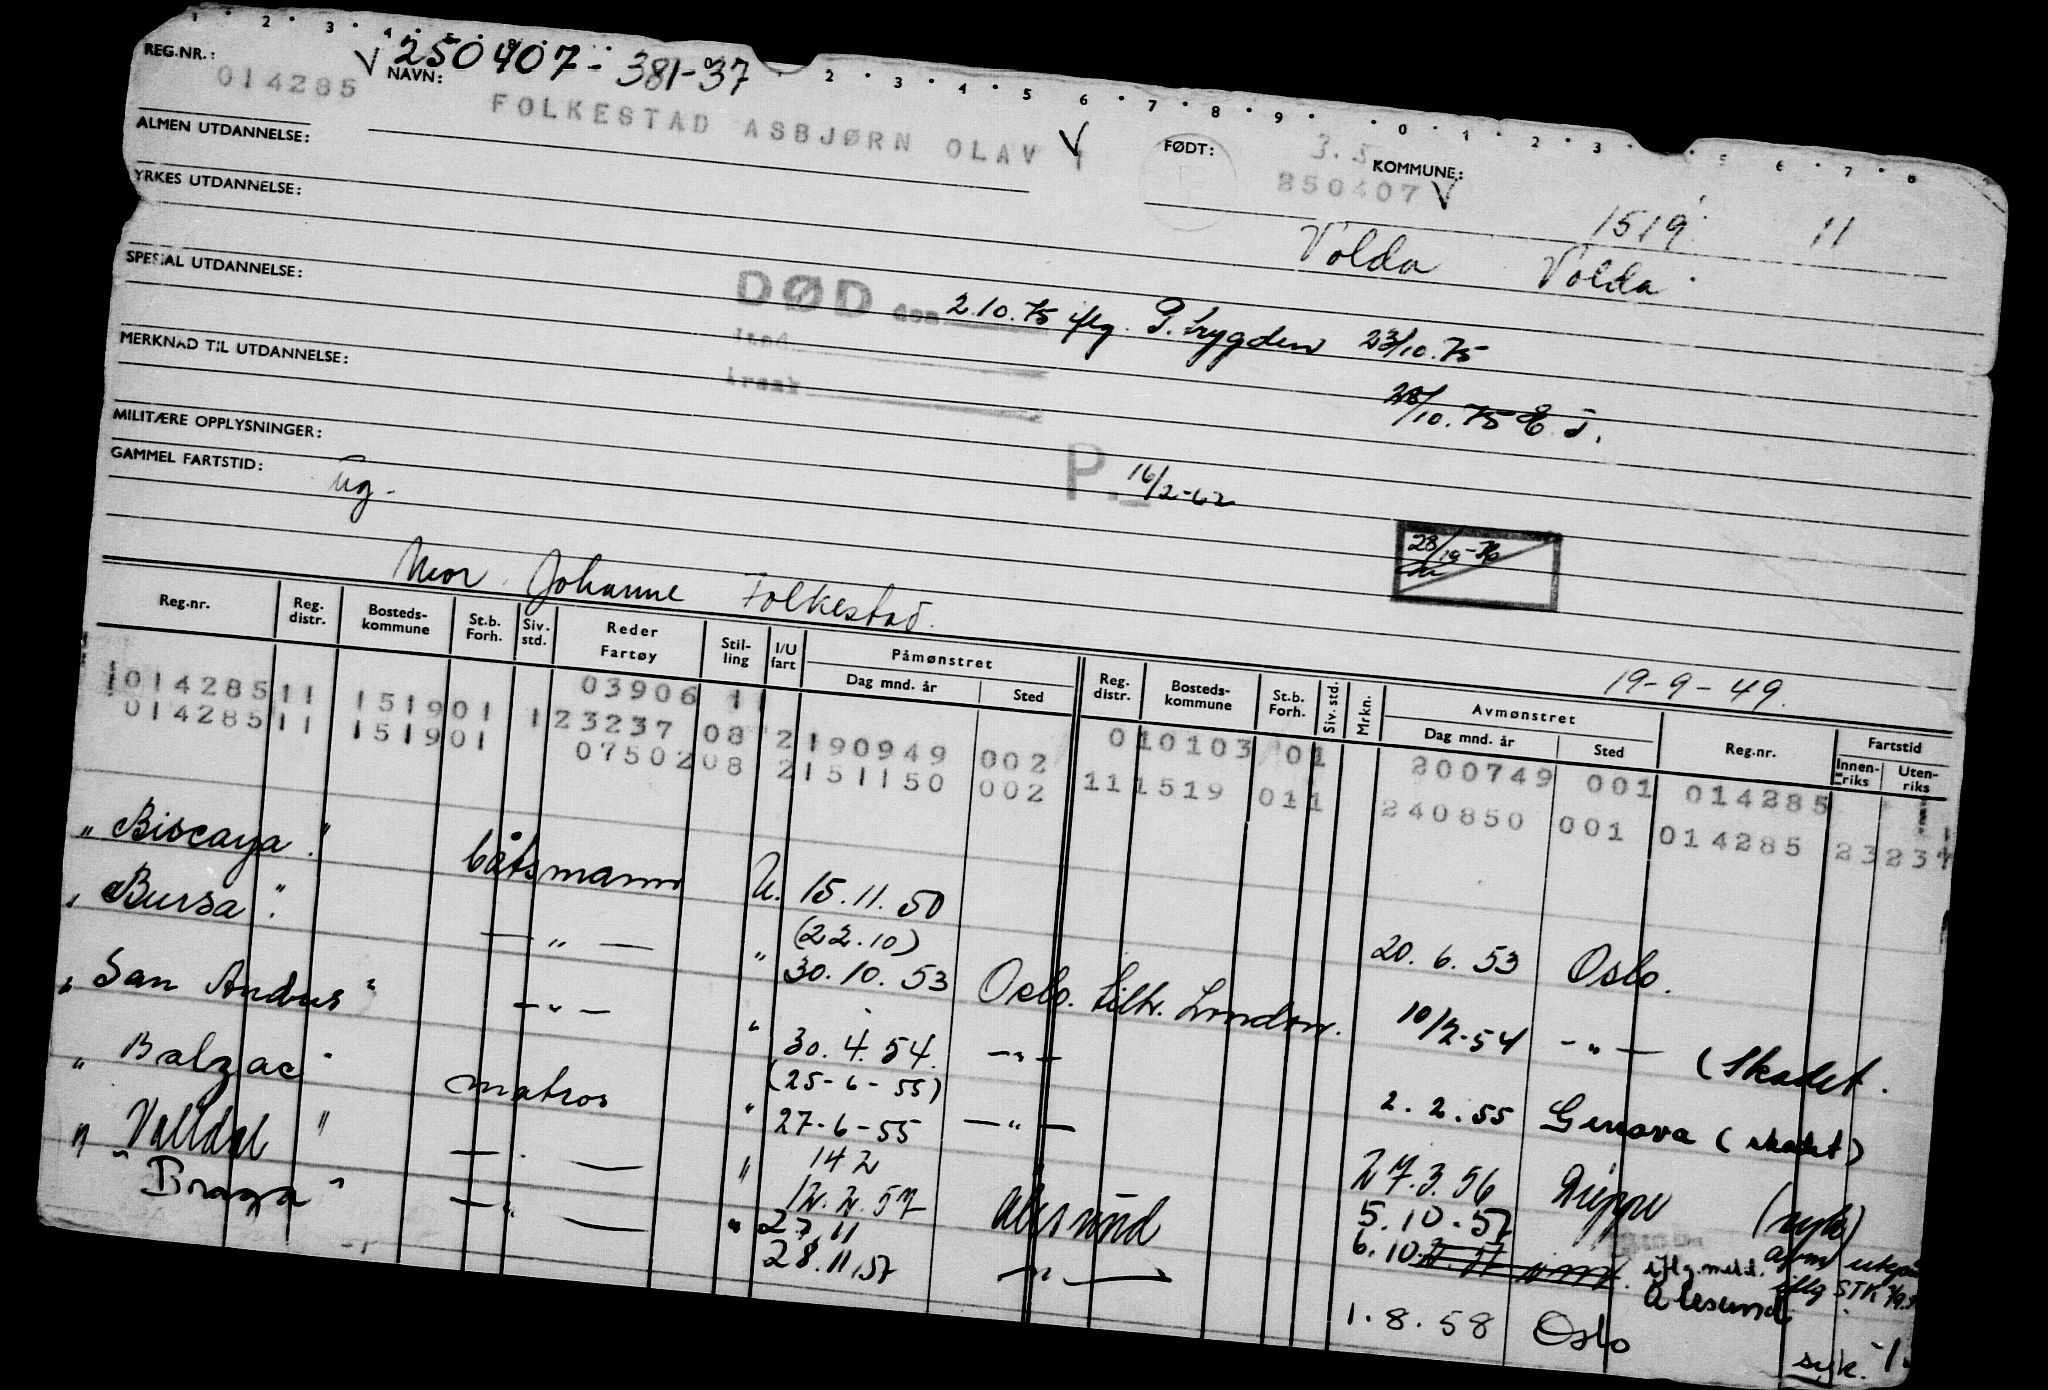 1 · 2 · 3 · 4
2 · 3 · 4 · 5 · 6 · 7 · 8 · 9 · 0 · 1 · 2 · 3 · 5 6 · 7 · 8
REG.NR.: 014285
V 250407 - 381-37
NAVN: FOLKESTAD ASBJØRN OLAV V
FØDT: 3.5
850407 V
KOMMUNE:
1519 11
Volda Volda
ALMEN UTDANNELSE:
YRKES UTDANNELSE:
SPESIAL UTDANNELSE:
DØD den 2.10.75 iflg. P. Lygden 23/10.75
sted
årsak
28/10.75 E. J.
MERKNAD TIL UTDANNELSE:
MILITÆRE OPPLYSNINGER:
P. 16/2-62
GAMMEL FARTSTID: Ug.
28/10-76
Mor Johanne Folkestad.
19-9-49.
Reg.nr. Reg. distr. Bosteds-kommune St.b. Forh. Siv. std. Reder Fartøy Stil-ling I/U fart Påmønstret Dag mnd. år Sted Reg. distr. Bosteds-kommune St.b. Forh. Siv. std. Mrkn. Avmønstret Dag mnd. år Sted Reg.nr. Fartstid Innen-riks Uten-riks
014285 11 151901 03906 11 010103 01 200749 001 014285
014285 11 151901 1 23237 08 2 190949 002 11 1519 011 240850 001 014285 23237
07502 08 2 151150 002
" Biscaya " båtsmann U. 15.11.50 20.6.53 Oslo.
" Bursa " — " — " (22.10) 30.10.53 Oslo. tiltr. London. 10/2-54 — " — (Skadet.
" San Andres " — " — " 30.4.54. — " — 2.2.55 Genova (skadet)
" Balzac " matros " (25-6-55) 27-6-55 — " — 27.3.56 Dieppe (syk)
" Valldal " — " — " 14 2 12.2.57 Ålesund 5.10.57
" Braga " — " — " 27.11 28.11.57 — " — 6.10 iflg. meld. Ålesund
avm utepå iflg STK
1.8.58 Oslo syk.